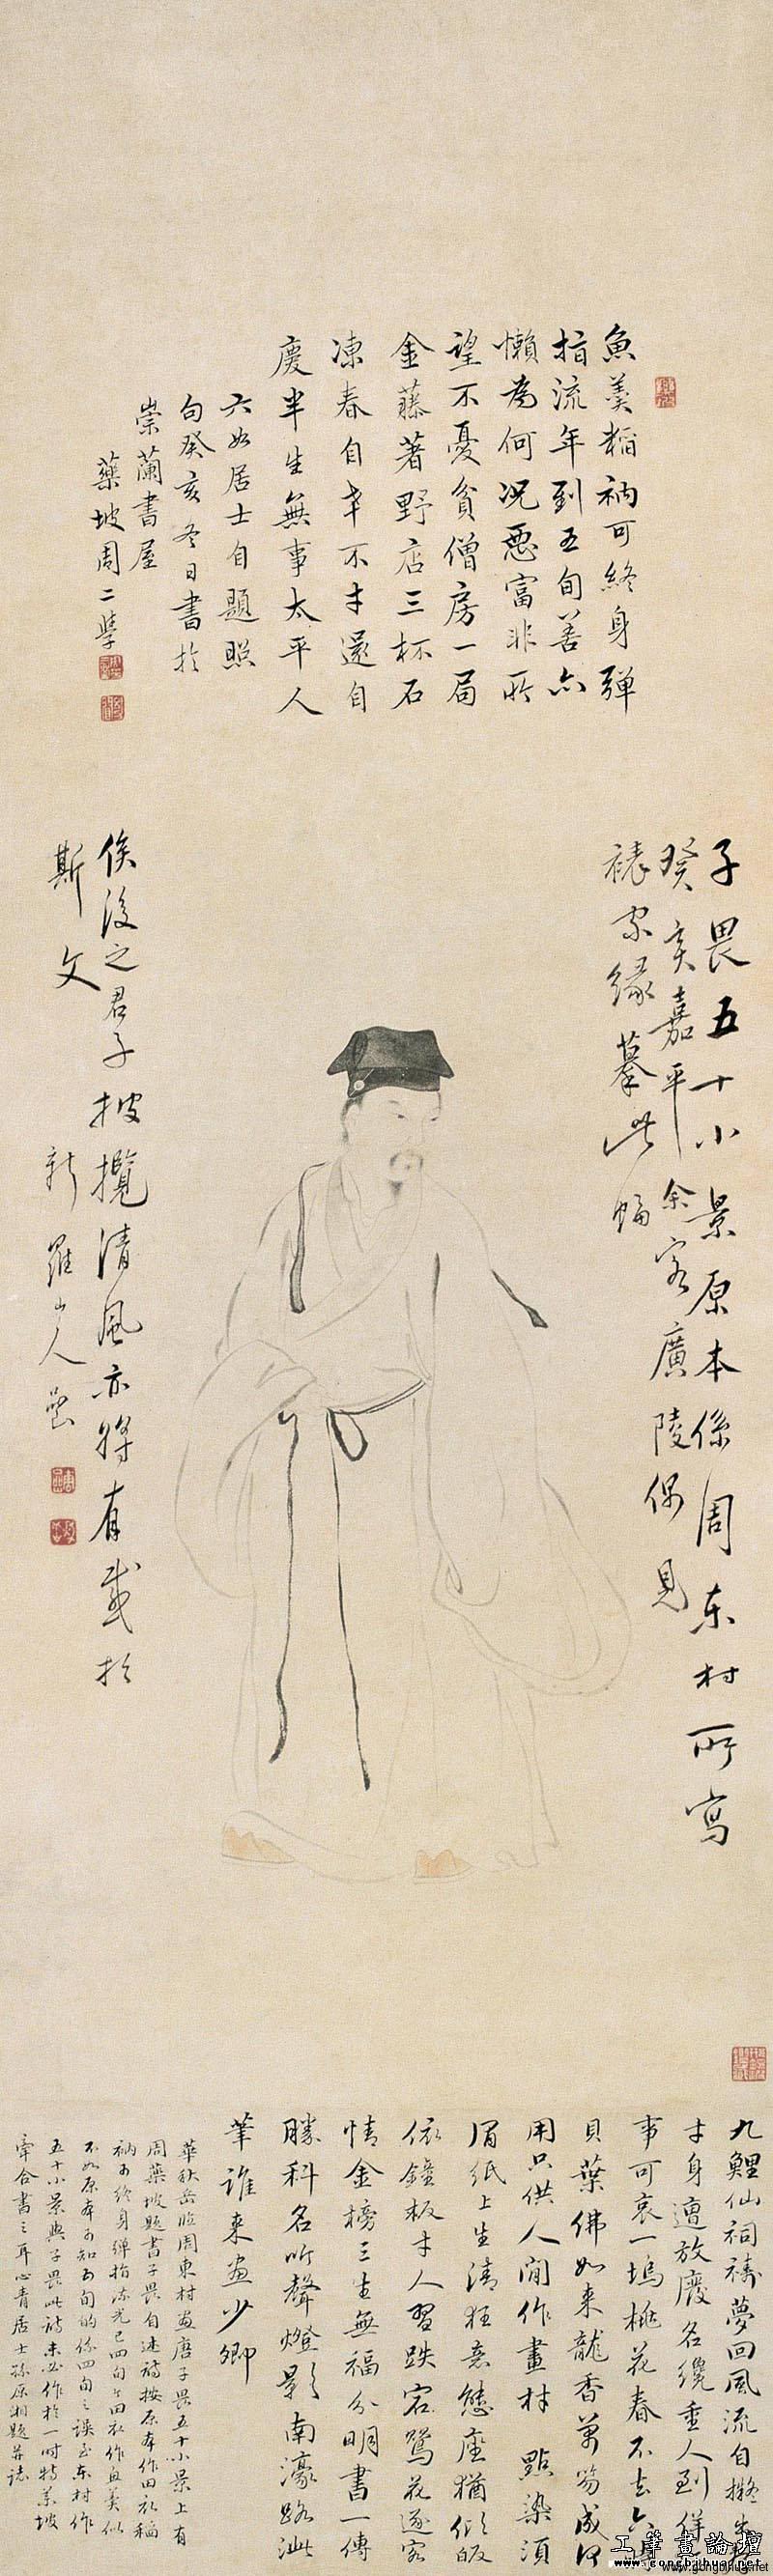 魚羮稻衲可終身彈
指流年到五旬善亦
懶為何况惡富非所
望不憂貧僧房一局
金藤著野店三杯石
凍春自幸不才還自
慶半生無事太平人
六如居士自題照
句癸亥冬日書於
崇蘭書屋
藥坡周二學
子畏五十小景原本係周東村所寫
癸亥嘉平余客廣陵偶見
裱家緣摹此幅
俟後之君子披攬清風亦將有感於
斯文
新羅山人嵒
九鯉仙祠禱夢回風流自擬
才身遭放廢名纔重人到
事可哀一塢桃花春不去六如
貝葉佛如來龍香萬笏成何
用只供人間作畫材 點染須
眉紙上生清狂意態座猶傾
依鐘板才人習跌宕鶯花逐客
情金榜三生無福分明書一傳
勝科名吹聲燈影南濠路此
筆誰來畫少卿
華秋岳臨周東村畫唐子畏五十小景上有
周藥坡題書子畏自述詩按原本作田衣稻
衲可終身彈指流光已四旬今田衣作魚羹似
不如原本可知五旬的係四旬之誤至東村作
五十小景與子畏此詩未必作於一時特藥坡
牽合書之耳心青居士孫原湘題并誌
工筆畫論壇
www.gongbihua.net